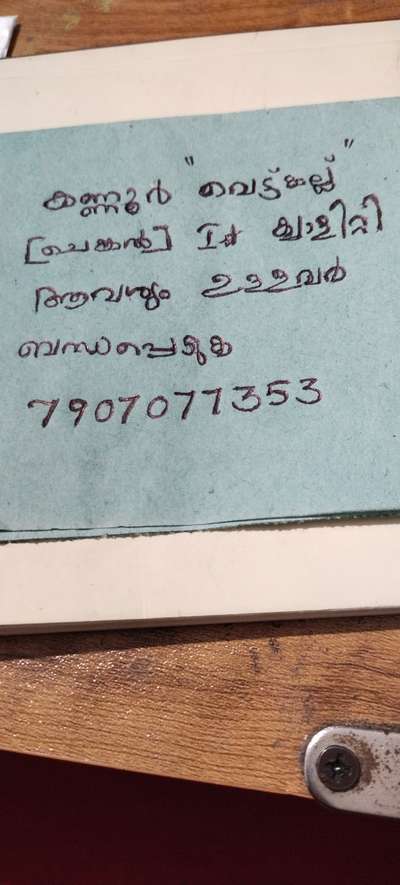 കണ്ണൂർ "വെട്ട്കല്ല്"
[ചെങ്കൽ] Ist ക്വാളിറ്റി
ആവശ്യം ഉള്ളവർ
ബന്ധപ്പെടുക
7907077353